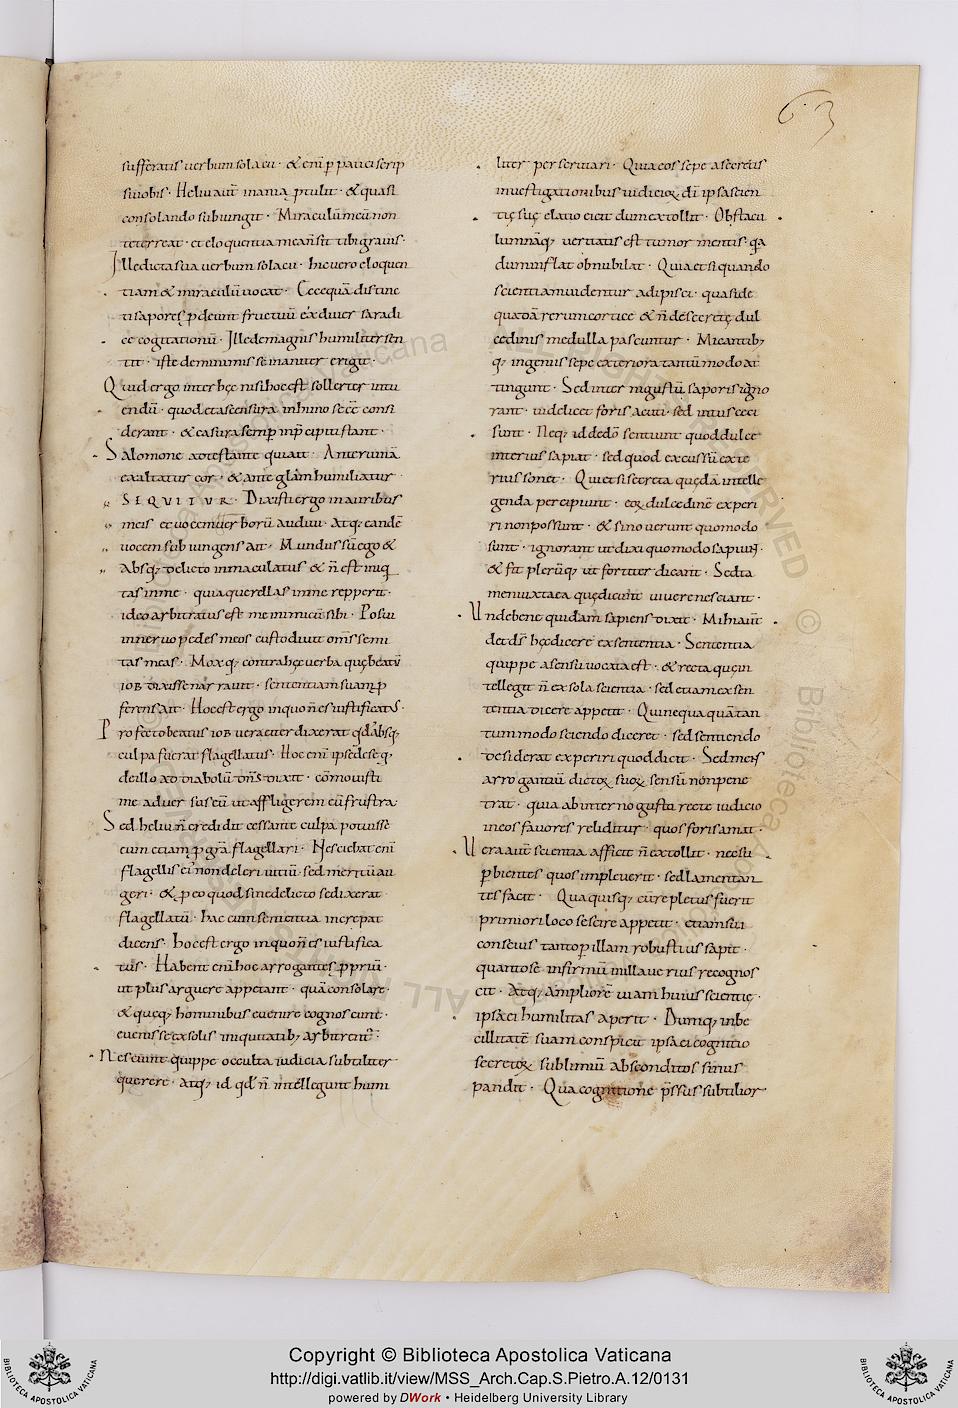 63
sufferatis uerbum solacii · & eni͂ ꝑ pauca scrip
si uobis · Heliu aut͂ inania ꝓtulit · & quasi
consolando subiungit · Miraculu͂ meu͂ non
te terreat · et eloquentia mea n̄ sit tibi grauis ·
Ille dicta sua uerbum solacii · hic uero eloquen
tiam & miraculu͂ uocat · Ecce qua͂ distinc
ti sapores ꝓdeunt fructuu͂ ex diuersa radi
ce cogitationu͂ · Ille de magnis humiliter sen
tit · iste de minimis se inaniter erigit ·
Quid ergo inter hęc nisi hoc est sollerter intu
endu͂ · quod et ascensura in humo se e͂e consi
derant · & casura semꝑ in p̄cipiti stant ·
Salomone adtestante qui ait · Ante ruina͂
exaltatur cor · & ante gl̄am humiliatur ·
SEQUITUR · Dixisti ergo in auribus
meis et uocem uerboru͂ audiui · Atq; eande͂
uocem subiungens ait · Mundus su͂ ego &
absq; delicto inmaculatus & n̄ est iniq
tas in me · quia querellas in me repperit ·
ideo arbitratus est me inimicu͂ sibi · Posui
in neruo pedes meos custodiuit om̄s semi
tas meas · Moxq; contra hęc uerba quę beatu͂
iob dixisse narrauit · sententiam suam ꝓ
ferens ait · Hoc est ergo in quo n̄ es iustificatus ·
Profecto beatus iob ueraciter dixerat qd absq;
culpa fuerat flagellatus · Hoc eni͂ ipse de se q;
de illo ad diabolu͂ dn̄s dixit · co͂mouisti
me aduersus eu͂ ut affligerem eu͂ frustra
Sed heliu n̄ credidit cessante culpa potuisse
eum etiam ꝑ gr̄a flagellari · Nesciebat eni͂
flagellis ei' non deleri uitiu͂ · sed meritu͂ au
geri · & ꝑ eo quod sine delicto se dixerat
flagellatu͂ · hac eum sententia increpat
dicens · hoc est ergo in quo n̄ es iustifica
tus · Habent eni͂ hoc arrogantes ꝓpriu͂ ·
ut plus arguere appetant · qua͂ consolare ·
& queq; hominibus euenire cognoscunt ·
euenisse ex solis iniquitatib; arbitrent' ·
Nesciunt quippe occulta iudicia subtiliter
querere · Atq; id qd n̄ intellegunt humi
liter perscrutari · Quia eos sepe a secretis
inuestigationibus iudicioꝝ di͂ ipsa scien
tię suę elatio eicit dum extollit · Obstacu
lumnaq; ueritatis est tumor mentis · qa
dum inflat obnubilat · Qui etsi quando
scientiam uidentur adipisci · quasi de
quada͂ rerum cortice & n̄ de secretę dul
cedinis medulla pascuntur · Micantib;
q; ingeniis sepe exteriora tantu͂modo at
tingunt · Sed inter ni gustu͂ saporis igno
rant · uidelicet foris acuti · sed intus ceci
sunt · Neq; id de do͂ sentiunt quod dulce
interius sapiat · sed quod excussu͂ exte
rius sonet · Qui etsi secreta quęda͂ intelle
genda percipiunt · eoꝝ dulcedine͂ experi
ri non possunt · & si nouerunt quomodo
sunt · ignorant ut dixi quomodo sapiunt ·
& fit pleru͂q; ut fortiter dicant · Sed ta
men iuxta ea quę dicunt uiuere nesciant ·
Unde bene quidam sapiens dixit · Mihi aut͂
det ds̄ hęc dicere ex sententia · Sententia
quippe a sensu uocata est · & recta quę in
tellegit n̄ ex sola scientia · sed etiam ex sen
tentia dicere appetit · Qui nequaqua͂ tan
tummodo sciendo dicere · sed sentiendo
desiderat experiri quod dicit · Sed meis
arrogantiu͂ dictoꝝ suoꝝ sensu͂ non pene
trat · quia ab interno gustu recte iudicio
in eos fauores reliditur · quos foris amat ·
Uera aut͂ scientia afficit n̄ extollit · nec su
ꝑbientes quos impleuerit · sed lamentan
tes facit · Qua quisq; cu͂ repletus fuerit
primiori loco se scire appetit · etiam sui
conscius tanto ꝑ illam robustius sapit ·
quanto se infirmu͂ in illa uerius recognos
cit · Atq; ampliore͂ uiam huius scientię ·
ipsa ei humilitas aperit · Dumq; inbe
cillitate͂ suam conspicit ipsa ei cognitio
secretoꝝ sublimiu͂ absconditos sinus
pandit · Qua cognitione p̄ssus subtilior
Copyright © Biblioteca Apostolica Vaticana
http://digi.vatlib.it/view/MSS_Arch.Cap.S.Pietro.A.12/0131
powered by DWork • Heidelberg University Library
BIBLIOTECA APOSTOLICA VATICANA
BIBLIOTECA APOSTOLICA VATICANA